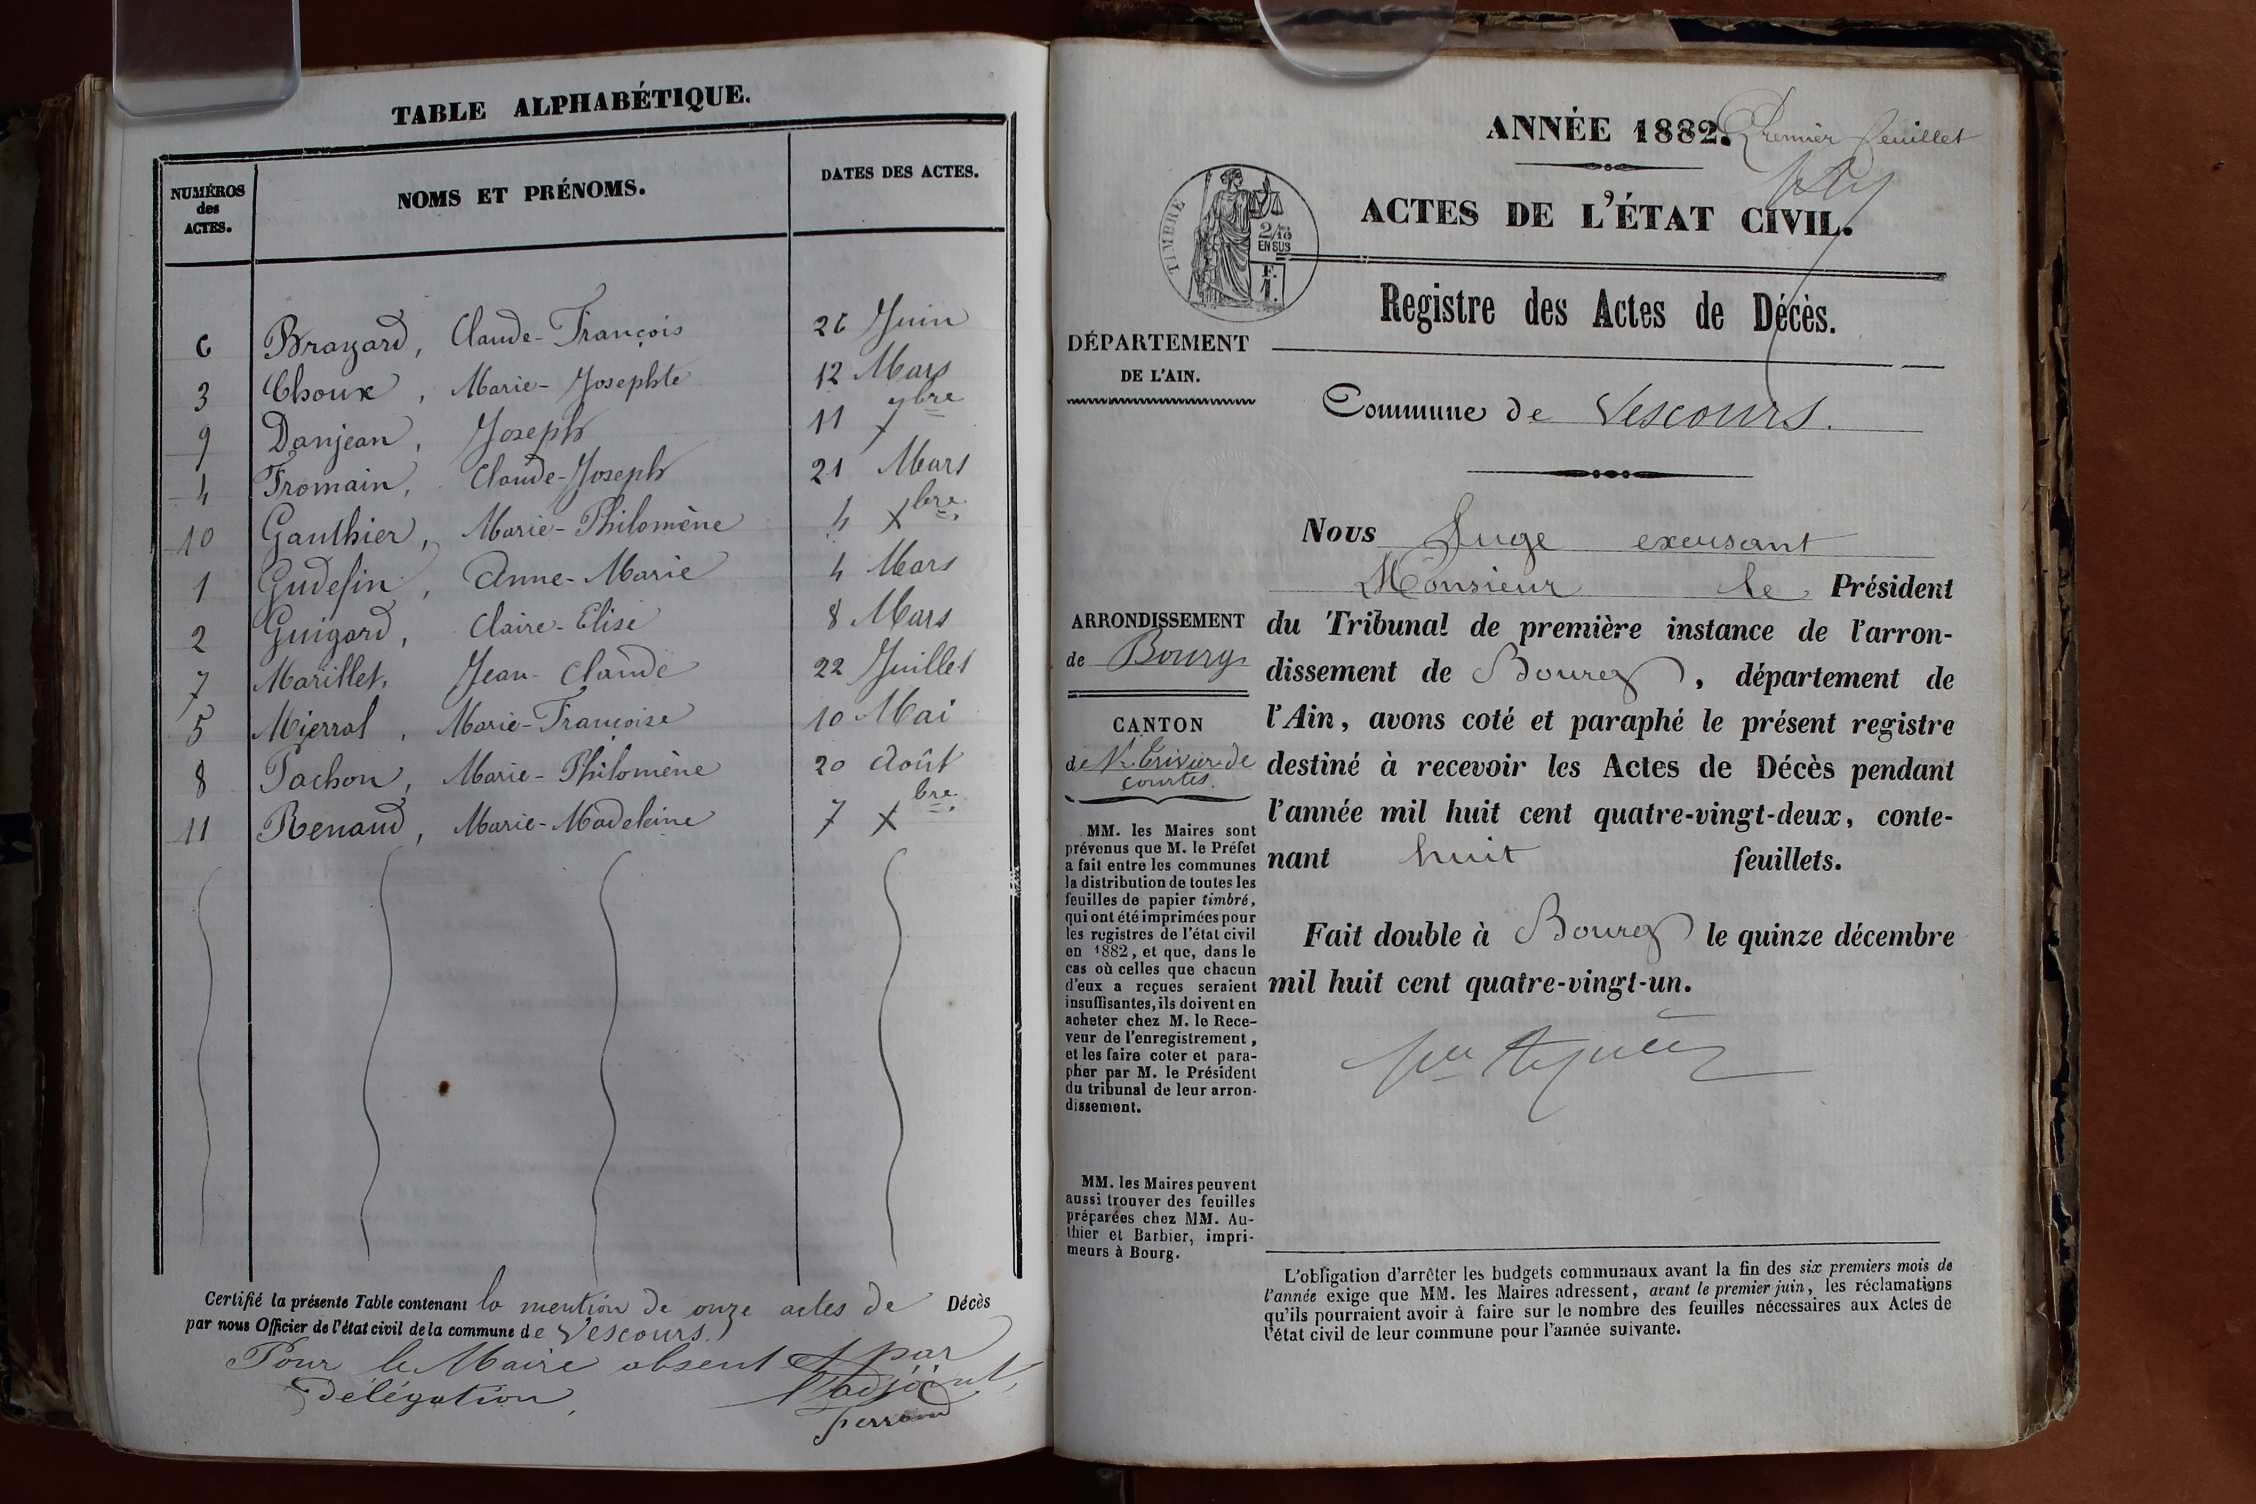 TABLE ALPHABÉTIQUE.
NUMÉROS
des
ACTES.
NOMS ET PRÉNOMS.
DATES DES ACTES.
6 Brazard, Claude-François 26 Juin
3 Choux, Marie-Josephte 12 Mars
9 Danjean, Joseph 11 9bre
4 Fromain, Claude-Joseph 21 Mars
10 Gauthier, Marie-Philomène 4 Xbre.
1 Gudefin, Anne-Marie 4 Mars
2 Guigard, Claire-Elise 8 Mars
7 Maillet, Jean-Claude 22 Juillet
5 Mierral, Marie-Françoise 10 Mai
8 Pachon, Marie-Philomène 20 Août
11 Renaud, Marie-Madeleine 7 Xbre.
Certifié la présente Table contenant la mention de onze actes de Décès
par nous Officier de l'état civil de la commune de Vescours.
Pour le Maire absent et par
délégation, l'adjoint,
perraud
ANNÉE 1882.
Premier feuillet
ACTES DE L'ÉTAT CIVIL.
TIMBRE
2/10
EN SUS
F.
1.
Registre des Actes de Décès.
DÉPARTEMENT
DE L'AIN.
Commune de Vescours.
ARRONDISSEMENT
de Bourg
CANTON
de St Trivier de
Courtes.
MM. les Maires sont
prévenus que M. le Préfet
a fait entre les communes
la distribution de toutes les
feuilles de papier timbré,
qui ont été imprimées pour
les registres de l'état civil
en 1882, et que, dans le
cas où celles que chacun
d'eux a reçues seraient
insuffisantes, ils doivent en
acheter chez M. le Rece-
veur de l'enregistrement,
et les faire coter et para-
pher par M. le Président
du tribunal de leur arron-
dissement.
MM. les Maires peuvent
aussi trouver des feuilles
préparées chez MM. Au-
thier et Barbier, impri-
meurs à Bourg.
Nous Juge excusant
Monsieur le Président
du Tribunal de première instance de l'arron-
dissement de Bourg, département de
l'Ain, avons coté et paraphé le présent registre
destiné à recevoir les Actes de Décès pendant
l'année mil huit cent quatre-vingt-deux, conte-
nant huit feuillets.
Fait double à Bourg le quinze décembre
mil huit cent quatre-vingt-un.
L'obligation d'arrêter les budgets communaux avant la fin des six premiers mois de
l'année exige que MM. les Maires adressent, avant le premier juin, les réclamations
qu'ils pourraient avoir à faire sur le nombre des feuilles nécessaires aux Actes de
l'état civil de leur commune pour l'année suivante.